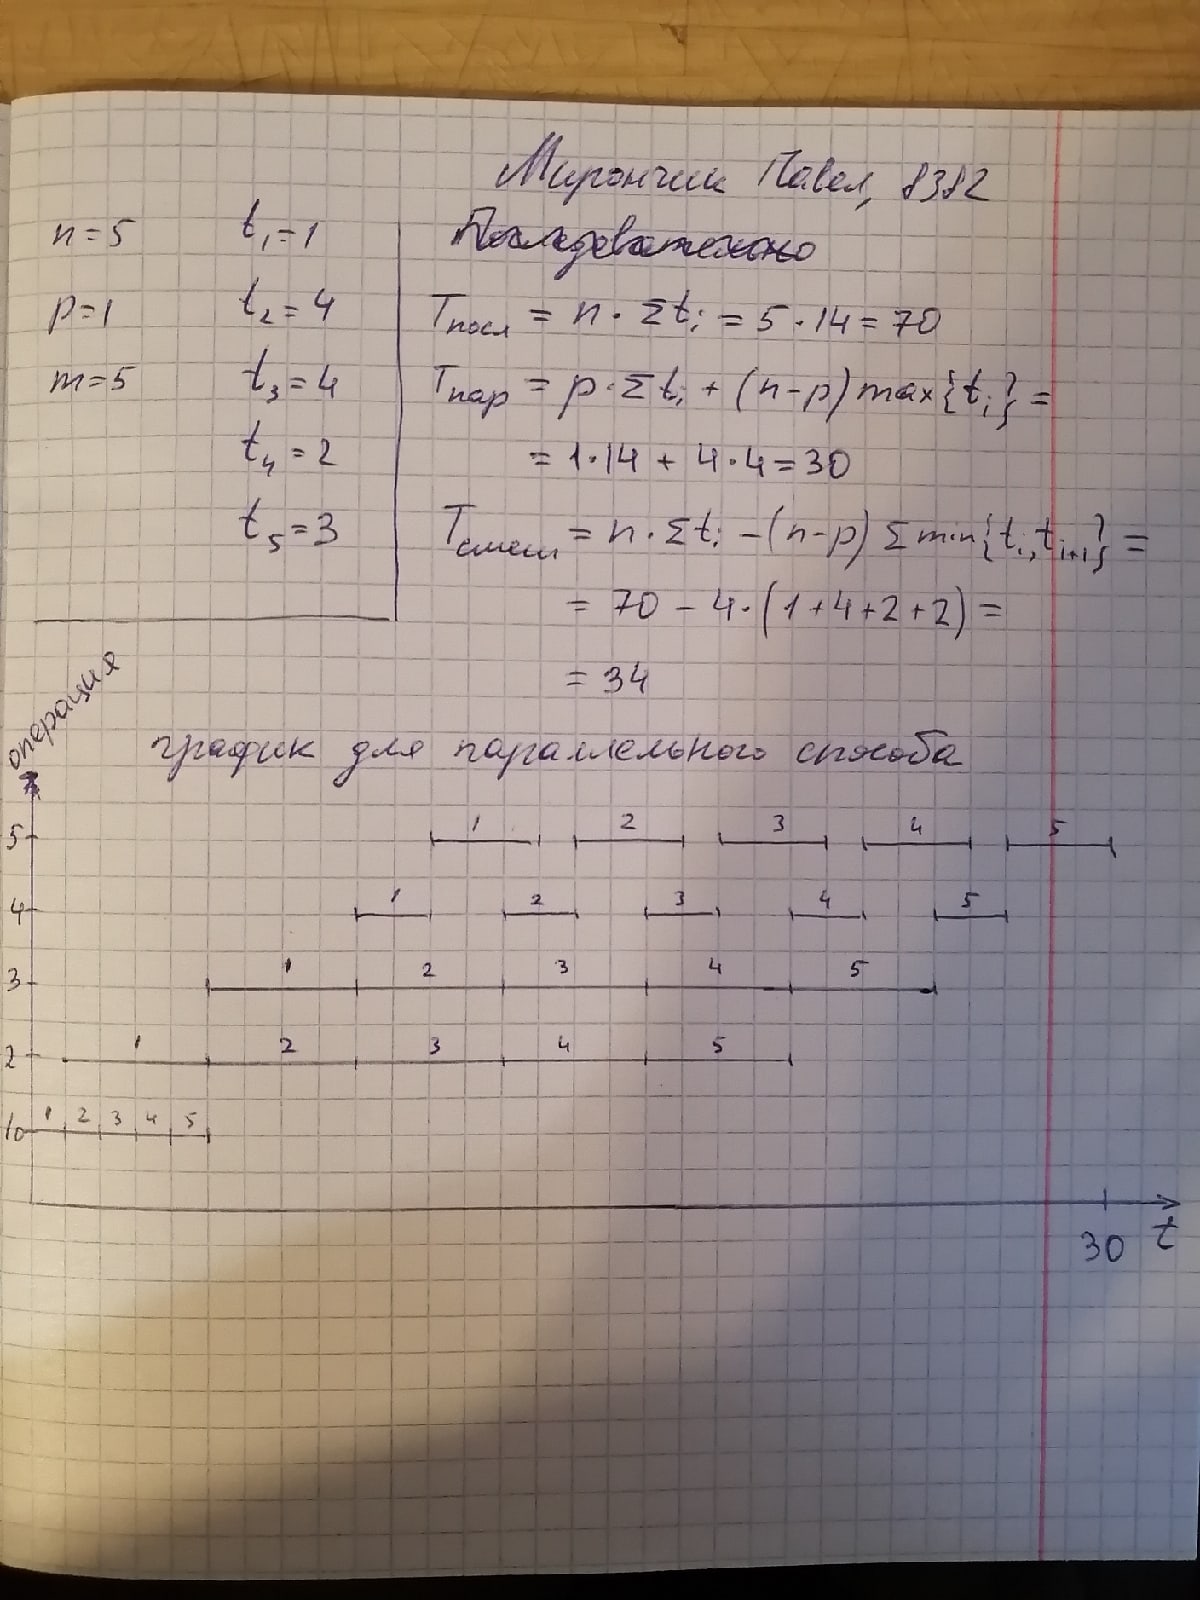 Мирончик Павел, 8382
n=5 t₁=1
p=1 t₂=4
m=5 t₃=4
t₄=2
t₅=3
Последовательно
Tпосл = n · Σtᵢ = 5 · 14 = 70
Tпар = p · Σtᵢ + (n-p) max{tᵢ} =
= 1·14 + 4·4 = 30
Tсмеш = n · Σtᵢ - (n-p) Σ min{tᵢ, tᵢ₊₁} =
= 70 - 4·(1+4+2+2) =
= 34
операция
график для параллельного способа
5 1 2 3 4 5
4 1 2 3 4 5
3 1 2 3 4 5
2 1 2 3 4 5
1 1 2 3 4 5
30 t